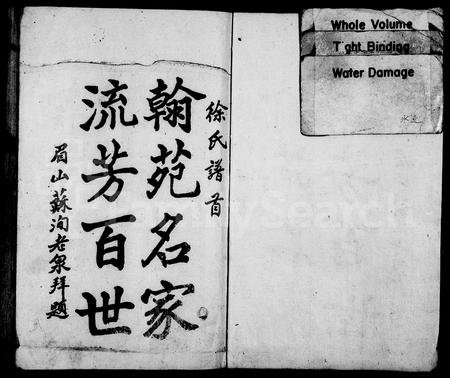 徐氏譜首
翰苑名家
流芳百世
眉山蘇洵老泉拜題
Whole Volume
Tight Binding
Water Damage
FamilySearch